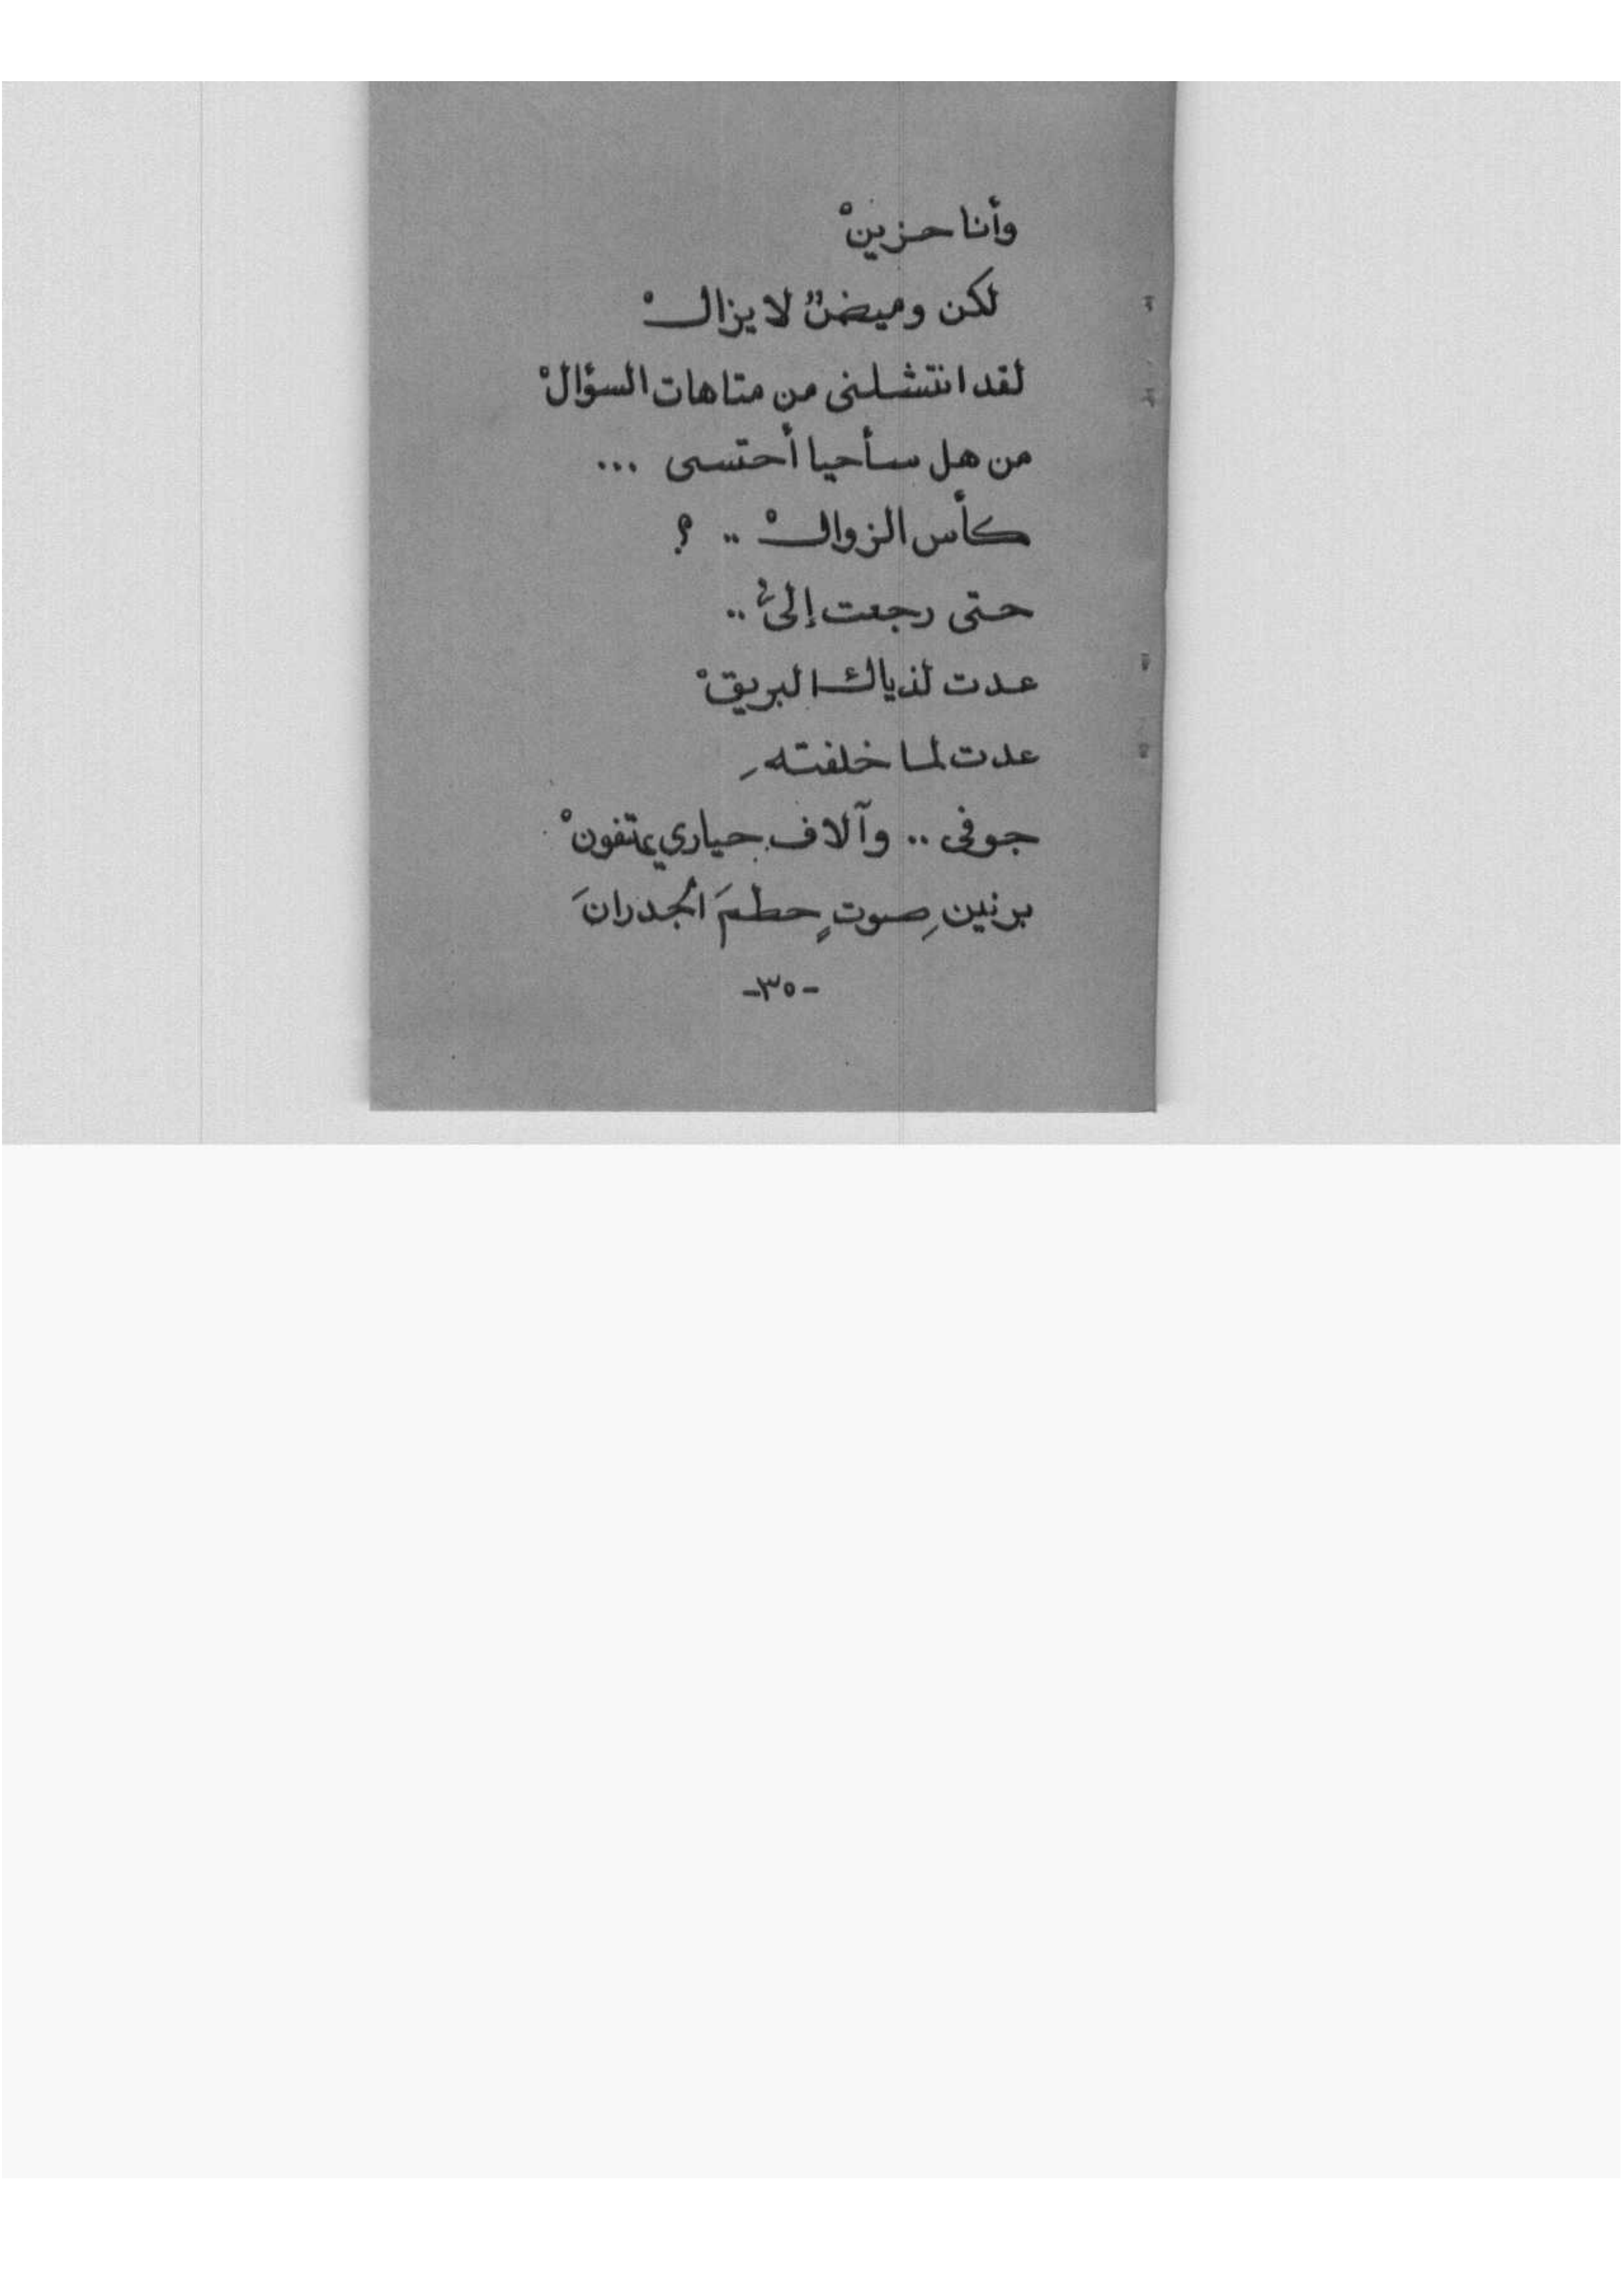 وأنا حزينْ
لكن وميضٌ لا يزالْ
لقد انتشلنى من متاهات السؤالْ
من هل سأحيا أحتسى ...
كأس الزوالْ .. ؟
حتى رجعت إلىُّ ..
عدت لذياك البريقْ
عدت لما خلفتهِ
جوفى .. وآلاف حياري
برنينِ صوتٍ حطمَ الجدرانَ
-٣٥-